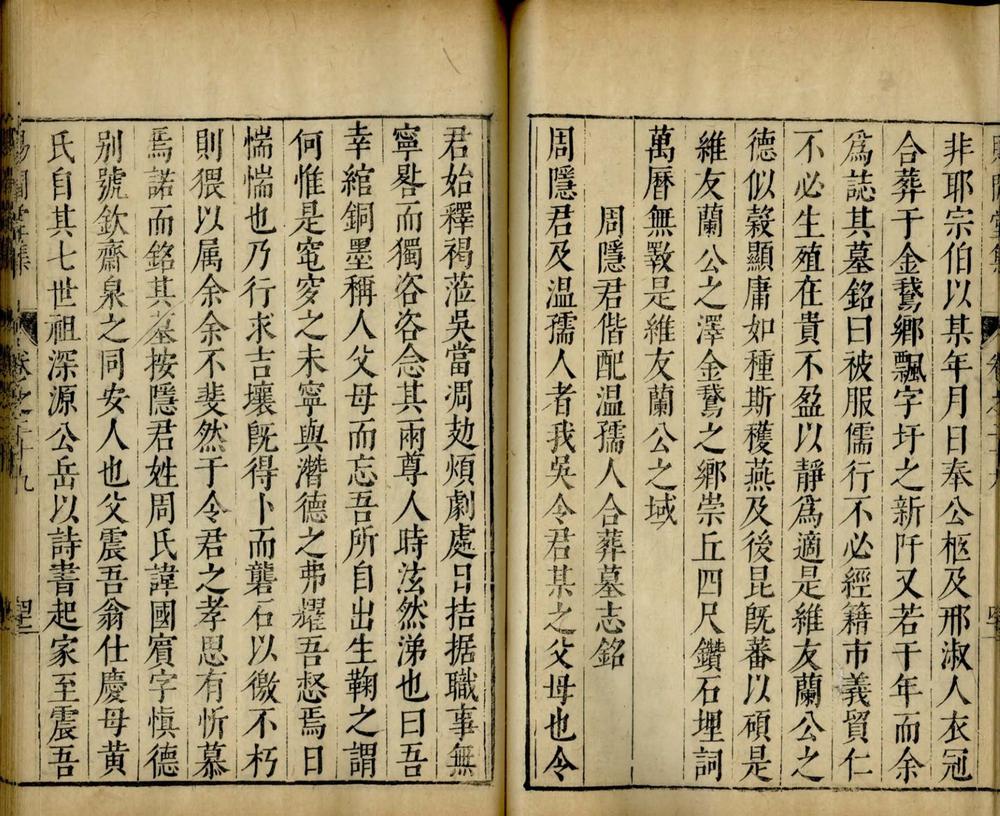 非耶宗伯以某年月日奉公柩及邢淑人衣冠
合葬于金鵞鄉飄字圩之新阡又若干年而余
爲誌其墓銘曰被服儒行不必經籍市義貿仁
不必生殖在貴不盈以靜爲適是維友蘭公之
德似穀顯庸如種斯穫燕及後昆旣蕃以碩是
維友蘭公之澤金鵞之鄉崇丘四尺鑽石埋詞
萬曆無斁是維友蘭公之域
周隱君偕配温孺人合葬墓志銘
周隱君及温孺人者我吳令君某之父母也令
君始釋褐蒞吳當凋攰煩劇處日拮据職事無
寧晷而獨咨咨念其兩尊人時泫然涕也曰吾
幸綰銅墨稱人父母而忘吾所自出生鞠之謂
何惟是窀穸之未寧與濳德之弗耀吾惄焉日
惴惴也乃行求吉壤旣得卜而礱石以徼不朽
則猥以属余余不斐然于令君之孝思有忻慕
焉諾而銘其墓按隱君姓周氏諱國賓字愼德
别號欽齋泉之同安人也父震吾翁仕慶母黄
氏自其七世祖深源公岳以詩書起家至震吾
賜閒堂集 卷之二十九